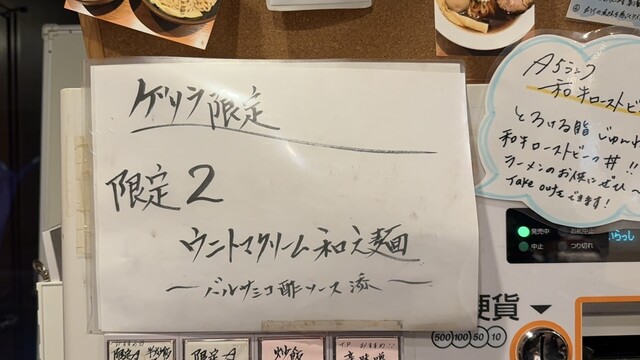 ゲリラ限定
限定2
ウニトマクリーム和え麺
〜バルサミコ酢ソース添〜
A5ランク
和牛ローストビ
とろける脂
和牛ローストビーフ丼!!
ラーメンのお供にぜひ
Take outもできます!
発売中
お釣中止
いらっし
中止
つり切れ
硬貨
500 100 50 10
限定A
炒飯